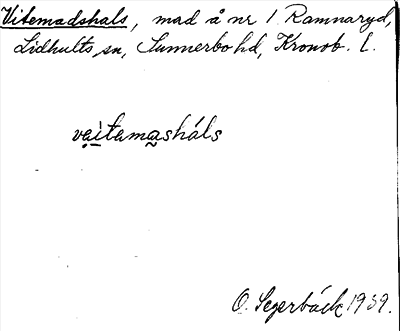 Vitemadshals, mad å nr 1 Ramnaryd,
Lidhults sn, Sunnerbo hd, Kronob. l.
vait​amasháls
O. Segerbäck 1939.